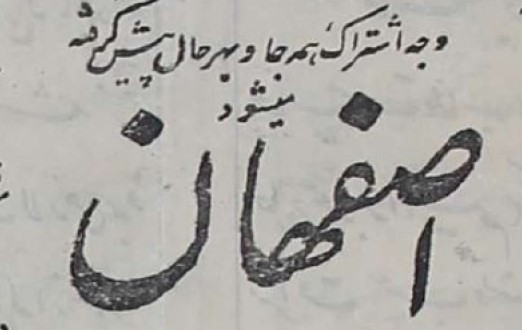 وجه اشتراک همه جا و بهر حال پیش گرفته
میشود
اصفهان